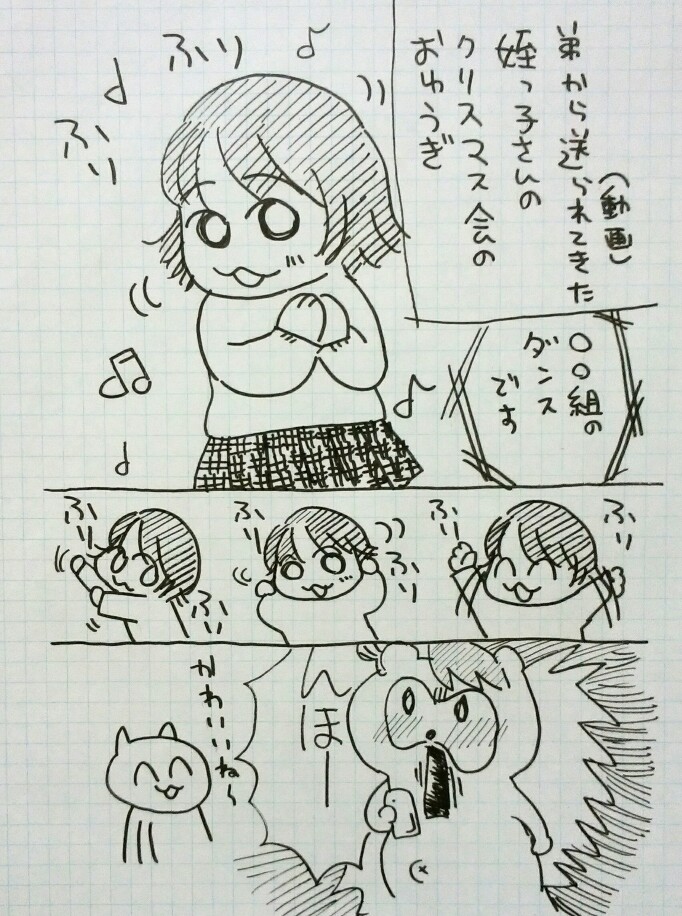 弟から送られてきた
(動画)
姪っ子さんの
クリスマス会の
おゆうぎ
ふり
ふり
〇〇組の
ダンス
です
ふり
ふり
ふり
ふり
ふり
ふり
んほー
かわいいねぇ